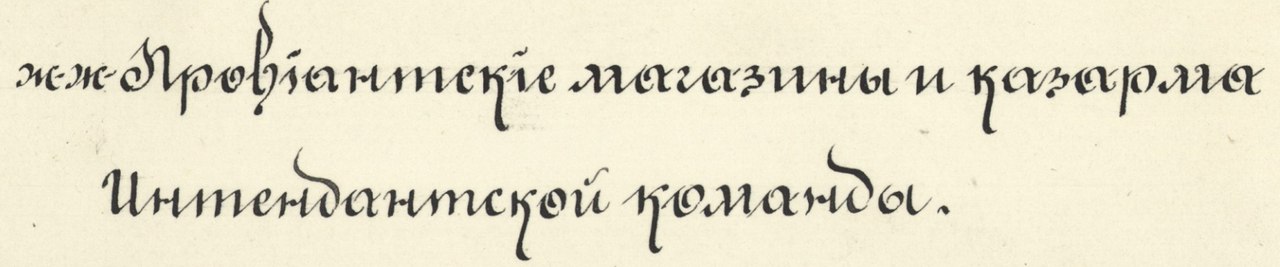 ж-ж- Провіантскіе магазины и казарма
Интендантской команды.